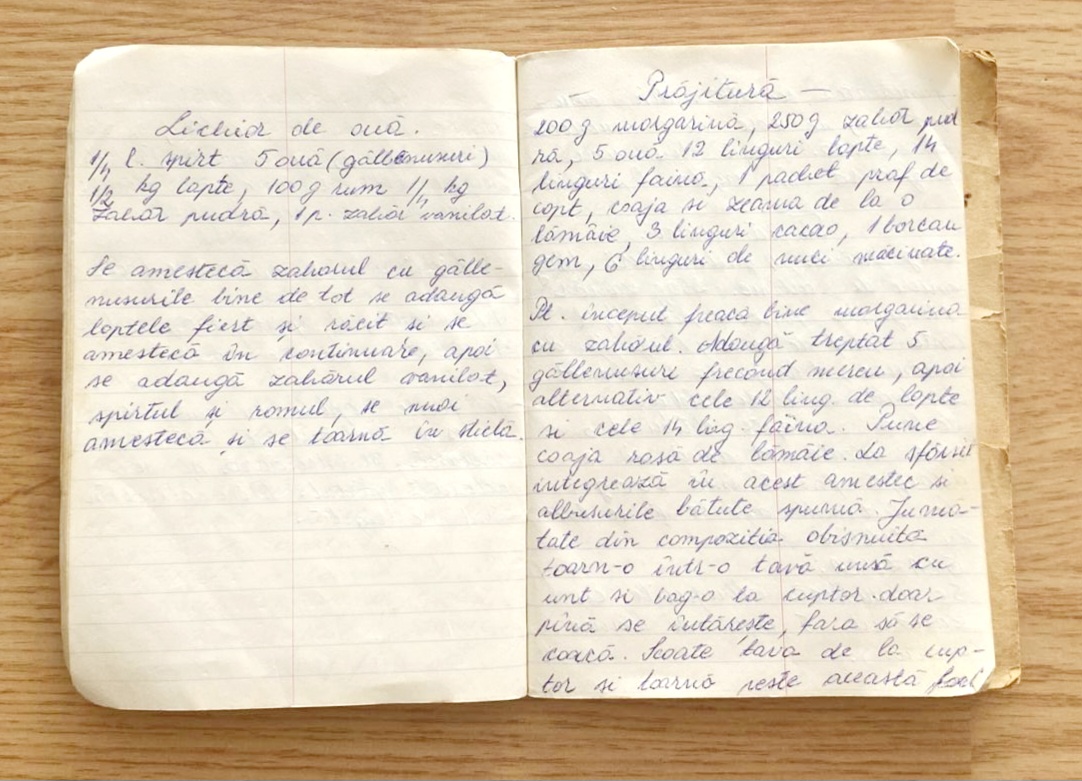 Lichior de ouă.
1/4 l. spirt 5 ouă (gălbenusuri)
1/2 kg lapte, 100 g rum 1/4 kg
zahăr pudră, 1 p. zahăr vanilat.
Se amestecă zahărul cu gălbe-
nusurile bine de tot se adaugă
laptele fiert și răcit si se
amestecă în continuare, apoi
se adaugă zahărul vanilat,
spirtul și romul, se mai
amestecă și se toarnă în sticlă.
Prăjitură —
200 g margarină, 250 g zahăr pud
ră, 5 ouă 12 linguri lapte, 14
linguri faina, 1 pachet praf de
copt, coaja si zeama de la o
lămâie, 3 linguri cacao, 1 borcan
gem, 6 linguri de nuci măcinate.
Pt. început freaca bine margarina
cu zahărul. Adaugă treptat 5
gălbenusuri frecând mereu, apoi
alternativ cele 12 ling. de lapte
si cele 14 lig. faina. Pune
coaja rasă de lămâie. La sfârsit
integrează în acest amestec si
albusurile bătute spumă. Jumă-
tate din compozitia obisnuită
toarn-o într-o tavă unsă cu
unt si bag-o la cuptor doar
pînă se întărește, fara să se
coacă. Scoate tava de la cup-
tor si toarnă peste această